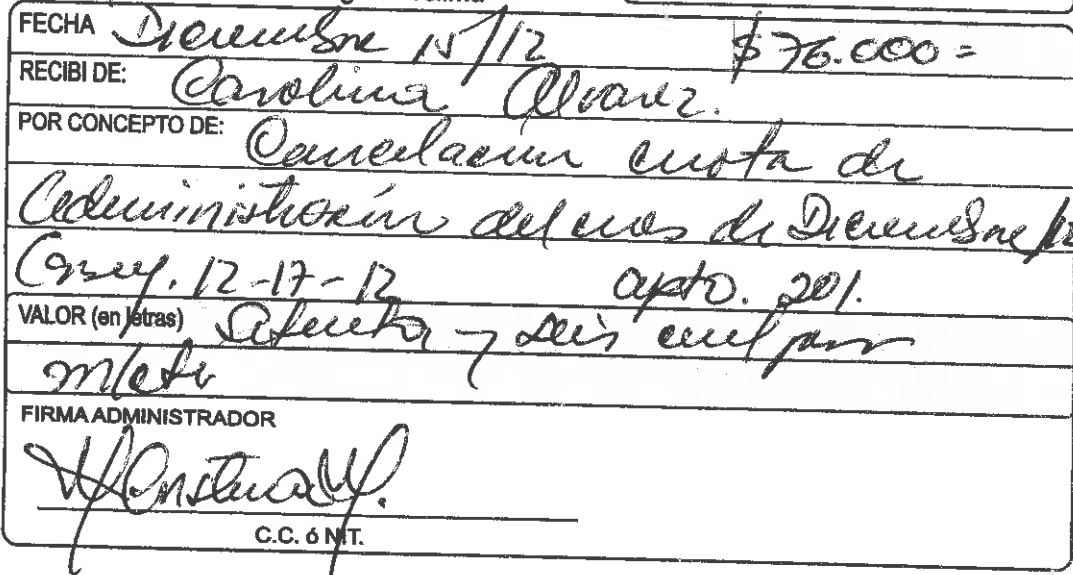 FECHA Diciembre 15/12 $76.000=
RECIBI DE: Carolina Alvarez.
POR CONCEPTO DE: Cancelación cuota de
Administración del mes de Diciembre/12
12-17-12 apto. 201.
VALOR (en letras) Setenta y seis mil pesos
m/cte
FIRMA ADMINISTRADOR
C.C. ó NIT.